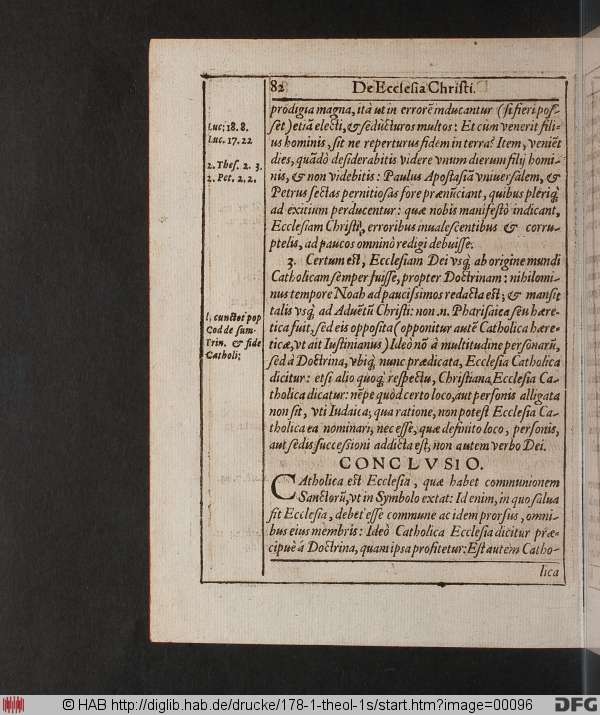 82 De Ecclesia Christi.
prodigia magna, itâ ut in errorẽ inducantur (si fieri pos-
set) etiã electi, & seducturos multos: Et cùm venerit fili-
us hominis, sit ne reperturus fidem in terra? Item, veniẽt
dies, quãdò desiderabitis videre vnum dierum filij homi-
nis, & non videbitis: Paulus Apostasiã vniuersalem, &
Petrus sectas pernitiosas fore prænũciant, quibus pleriq́;
ad exitium perducentur: quæ nobis manifestò indicant,
Ecclesiam Christi, erroribus inualescentibus & corru-
ptelis, ad paucos omninò redigi debuisse.
3. Certum est, Ecclesiam Dei vsq́; ab origine mundi
Catholicam semper fuisse, propter Doctrinam: nihilomi-
nus tempore Noah ad paucissimos redacta est; & mansit
talis vsq́; ad Aduẽtũ Christi: non .n. Pharisaica seu hære-
tica fuit, sed eis opposita (opponitur autẽ Catholica hære-
ticæ, vt ait Iustinianus) Ideò nõ à multitudine personarũ,
sed à Doctrina, vbiq́; nunc prædicata, Ecclesia Catholica
dicitur: etsi alio quoq́; respectu, Christiana Ecclesia Ca-
tholica dicatur: nẽpe quòd certo loco, aut personis alligata
non sit, vti Iudaica; qua ratione, non potest Ecclesia Ca-
tholica ea nominari, nec esse, quæ definito loco, personis,
aut sedis successioni addicta est, non autem verbo Dei.
CONCLVSIO.
CAtholica est Ecclesia, quæ habet communionem
Sanctorũ, vt in Symbolo extat: Id enim, in quo salua
sit Ecclesia, debet esse commune ac idem prorsus, omni-
bus eius membris: Ideò Catholica Ecclesia dicitur præ-
cipuè à Doctrina, quam ipsa profitetur: Est autem Catho-
lica
Luc; 18. 8.
Luc. 17. 22
2. Thes. 2. 3.
2. Pet. 2. 2.
l. cunctos pop
Cod de sum-
Trin. & fide
Catholi;
© HAB http://diglib.hab.de/drucke/178-1-theol-1s/start.htm?image=00096
DFG